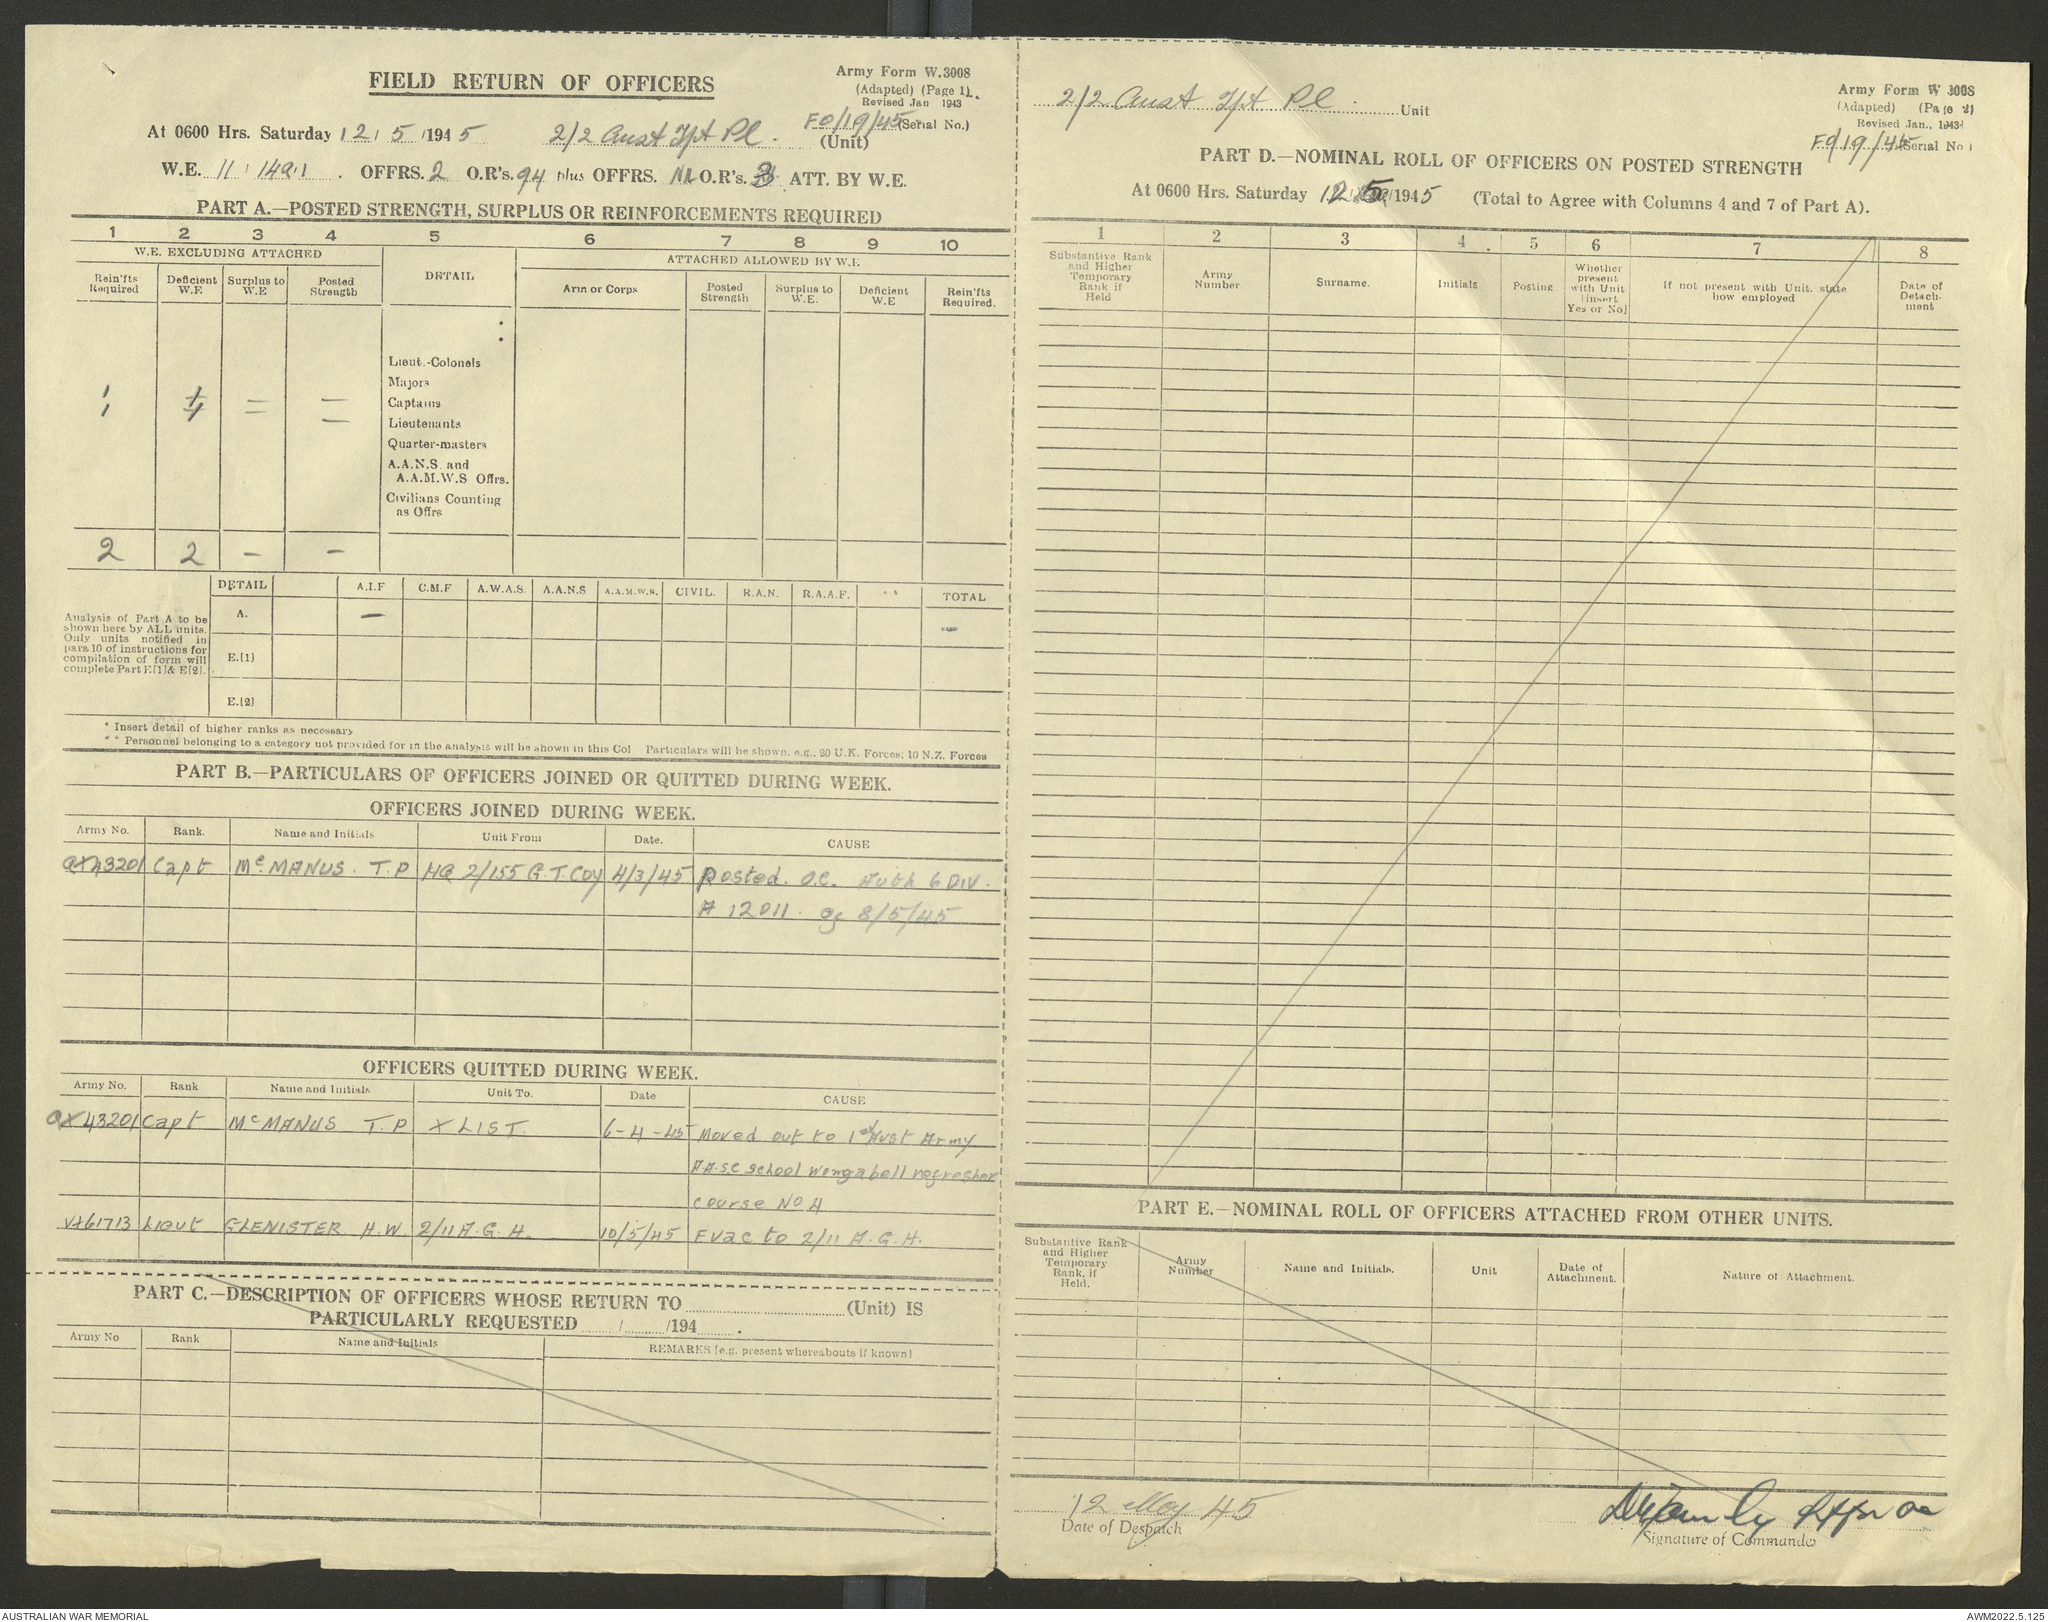 FIELD RETURN OF OFFICERS
Army Form W.3008
(Adapted) (Page 1)
Revised Jan 1943
At 0600 Hrs. Saturday 12/5/1945 2/2 Aust Tpt Pl. (Unit) FO/19/45 (Serial No.)
W.E. 11/149/1. OFFRS. 2 O.R's. 94 plus OFFRS. Nil O.R's. 3 ATT. BY W.E.
PART A.—POSTED STRENGTH, SURPLUS OR REINFORCEMENTS REQUIRED
1 2 3 4 5 6 7 8 9 10
W.E. EXCLUDING ATTACHED DETAIL ATTACHED ALLOWED BY W.E
Rein'fts Required Deficient W.E. Surplus to W.E Posted Strength Arm or Corps Posted Strength Surplus to W.E. Deficient W.E Rein'fts Required.
Lieut.-Colonels
Majors
1 1 – – Captains
1 1 – – Lieutenants
Quarter-masters
A.A.N.S. and
A.A.M.W.S Offrs.
Civilians Counting
as Offrs
2 2 – –
DETAIL A.I.F C.M.F A.W.A.S. A.A.N.S A.A.M.W.S. CIVIL. R.A.N. R.A.A.F. ** TOTAL
A. – –
E.(1)
E.(2)
Analysis of Part A to be
shown here by ALL units.
Only units notified in
para 10 of instructions for
compilation of form will
complete Part E[1] & E[2].
* Insert detail of higher ranks as necessary
** Personnel belonging to a category not provided for in the analysis will be shown in this Col Particulars will be shown, e.g., 20 U.K. Forces; 10 N.Z. Forces
PART B.—PARTICULARS OF OFFICERS JOINED OR QUITTED DURING WEEK.
OFFICERS JOINED DURING WEEK.
Army No. Rank. Name and Initials Unit From Date. CAUSE
QX43201 Capt McMANUS. T.P HQ 2/155 G.T.Coy 4/3/45 Posted. O.C. Auth 6 DIV.
A 12011. of 8/5/45
OFFICERS QUITTED DURING WEEK.
Army No. Rank Name and Initials Unit To. Date CAUSE
QX43201 Capt McMANUS T.P X LIST. 6-4-45 Moved out to 1st Aust Army
A.A.S.C School Wongabell refresher
course No 4
VX61713 Lieut GLENISTER H.W. 2/11 A.G.H. 10/5/45 Evac to 2/11 A.G.H.
PART C.—DESCRIPTION OF OFFICERS WHOSE RETURN TO (Unit) IS
PARTICULARLY REQUESTED / /194 .
Army No Rank Name and Initials REMARKS [e.g. present whereabouts if known]
2/2 Aust Tpt Pl. Unit
Army Form W 3008
(Adapted) (Page 2)
Revised Jan., 1943
FO/19/45 (Serial No)
PART D.—NOMINAL ROLL OF OFFICERS ON POSTED STRENGTH
At 0600 Hrs. Saturday 12/5/1945 (Total to Agree with Columns 4 and 7 of Part A).
1 2 3 4 5 6 7 8
Substantive Rank and Higher Temporary Rank if Held Army Number Surname. Initials Posting Whether present with Unit [insert Yes or No] If not present with Unit, state how employed Date of Detachment
PART E.—NOMINAL ROLL OF OFFICERS ATTACHED FROM OTHER UNITS.
Substantive Rank and Higher Temporary Rank, if Held. Army Number Name and Initials. Unit Date of Attachment. Nature of Attachment.
12 May 45
Date of Despatch
Signature of Commander
AUSTRALIAN WAR MEMORIAL
AWM2022.5.125